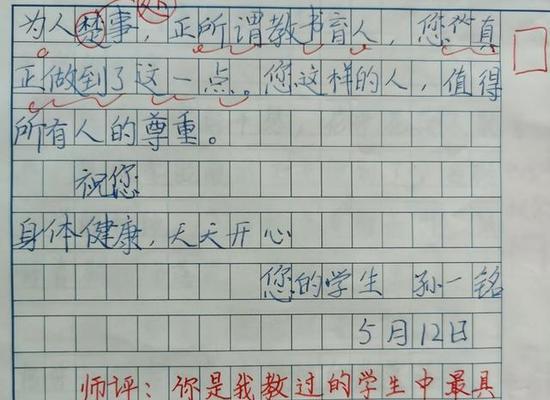 为人楚事，正所谓教书育人，您从真
正做到了这一点。您这样的人，值得
所有人的尊重。
祝您
身体健康，天天开心
您的学生 孙一铭
5月12日
师评：你是我教过的学生中最具